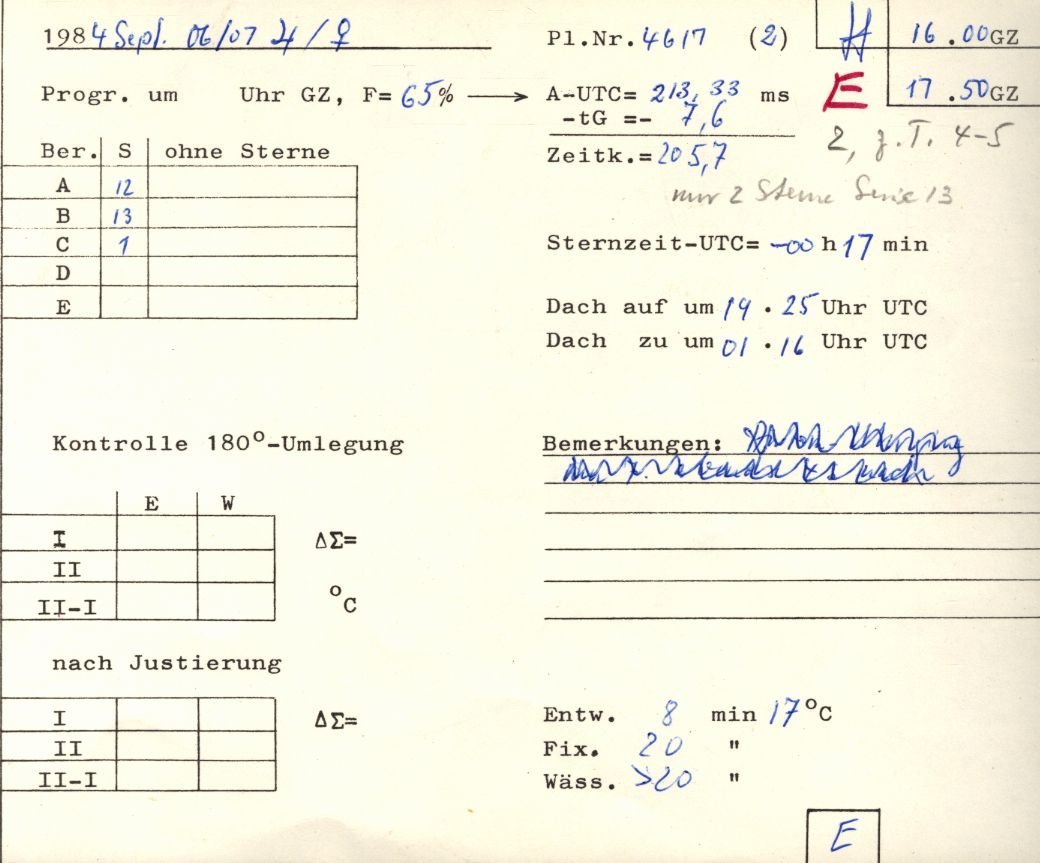 1984 Sept. 06/07 ♃/♀
Pl.Nr. 4617 (2)
H 16.00GZ
Progr. um Uhr GZ, F= 65% → A-UTC= 213,33 ms
E 17.50GZ
-tG =- 7,6
2, z.T. 4-5
Zeitk.= 205,7
nur 2 Sterne Serie 13
Ber. S ohne Sterne
A 12
B 13
C 1
D
E
Sternzeit-UTC= -00 h 17 min
Dach auf um 19.25 Uhr UTC
Dach zu um 01.16 Uhr UTC
Kontrolle 180°-Umlegung
E W
I ΔΣ=
II
II-I °C
nach Justierung
I ΔΣ=
II
II-I
Bemerkungen:
Entw. 8 min 17°C
Fix. 20 "
Wäss. >20 "
E